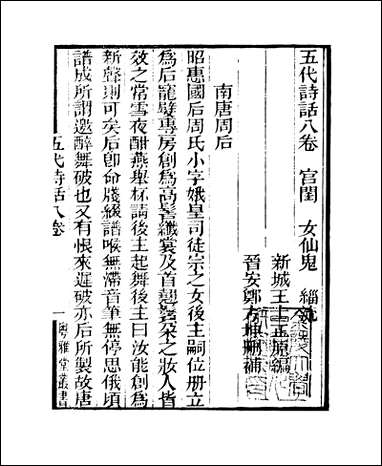 五代詩話八卷　宮閨　女仙鬼　緇
新城王士正原編
晉安鄭方坤刪補
南唐周后
昭惠國后周氏小字娥皇司徒宗之女後主嗣位册立
為后寵嬖專房創為高髻纖裳及首翹鬢朵之妝人皆
效之常雪夜酣燕舉杯請後主起舞後主曰汝能創為
新聲則可矣后卽命牋綴譜喉無滯音筆無停思俄頃
譜成所謂邀醉舞破也又有恨來遲破亦后所製故唐
五代詩話八卷　一　粵雅堂叢書